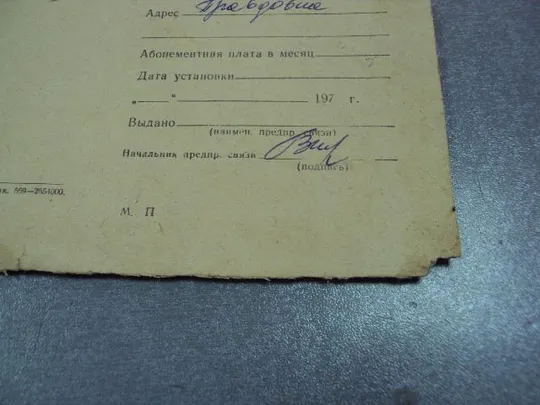 Адрес Правдовка
Абонементная плата в месяц
Дата установки
„ “ 197 г.
Выдано
(наимен. предпр. связи)
Начальник предпр. связи
(подпись)
ак. 559—2554000.
М. П